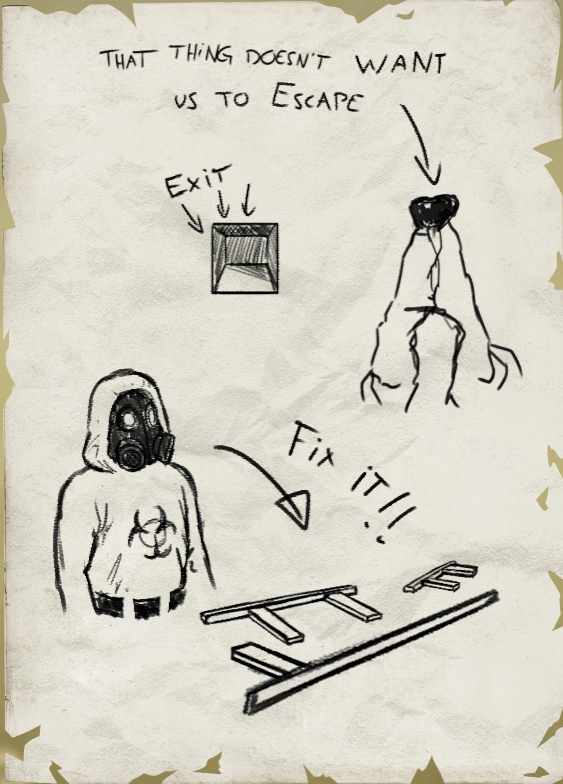 THAT THiNG DOESN'T WANT
US TO ESCAPE
ExiT
Fix iT!!